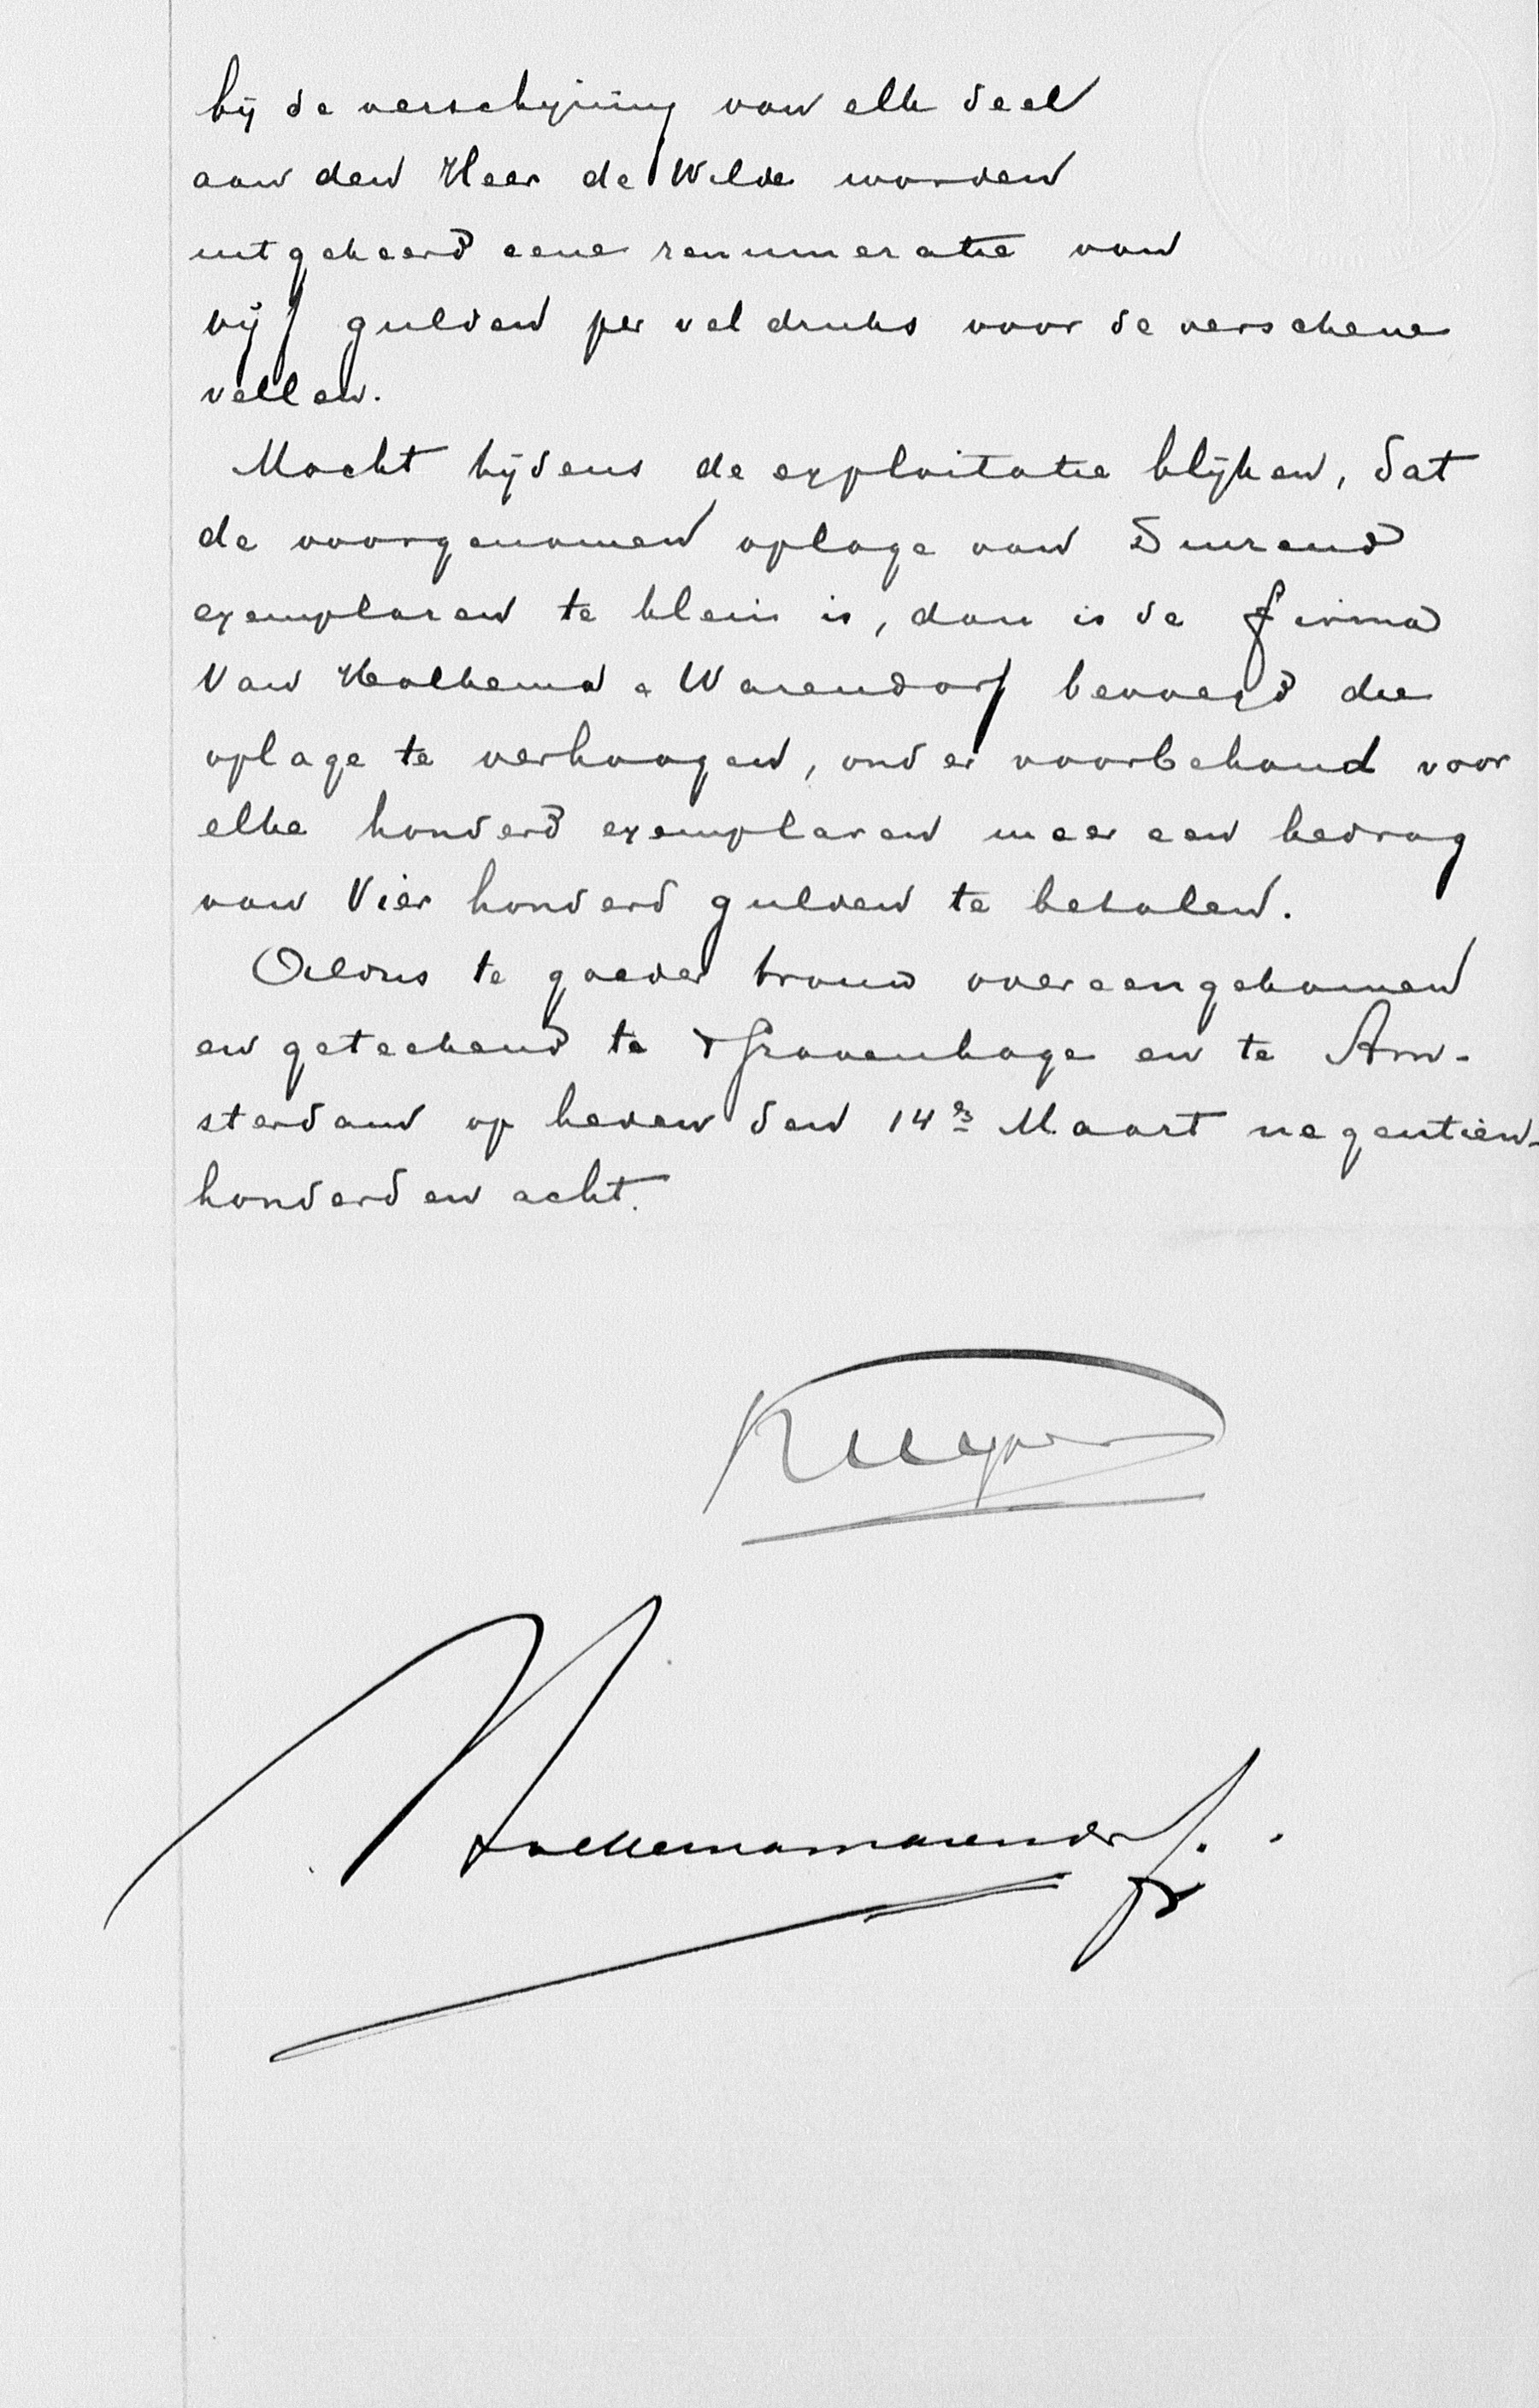 bij de verschijning van elk deel
aan den Heer de Wilde worden
uitgekeerd eene renumeratie van
vijf gulden per vel druks voor de verschene
vellen.
Mocht tijdens de exploitatie blijken, dat
de voorgenomen oplage van Duizend
exemplaren te klein is, dan is de firma
Van Holkema & Warendorf bevoegd die
oplage te verhoogen, onder voorbehoud voor
elke honderd exemplaren meer een bedrag
van Vier honderd gulden te betalen.
Aldus te goeder trouw overeengekomen
en geteekend te 's Gravenhage en te Am-
sterdam op heden den 14en Maart negentien-
honderd en acht.
Kuyper
Holkema Warendorf